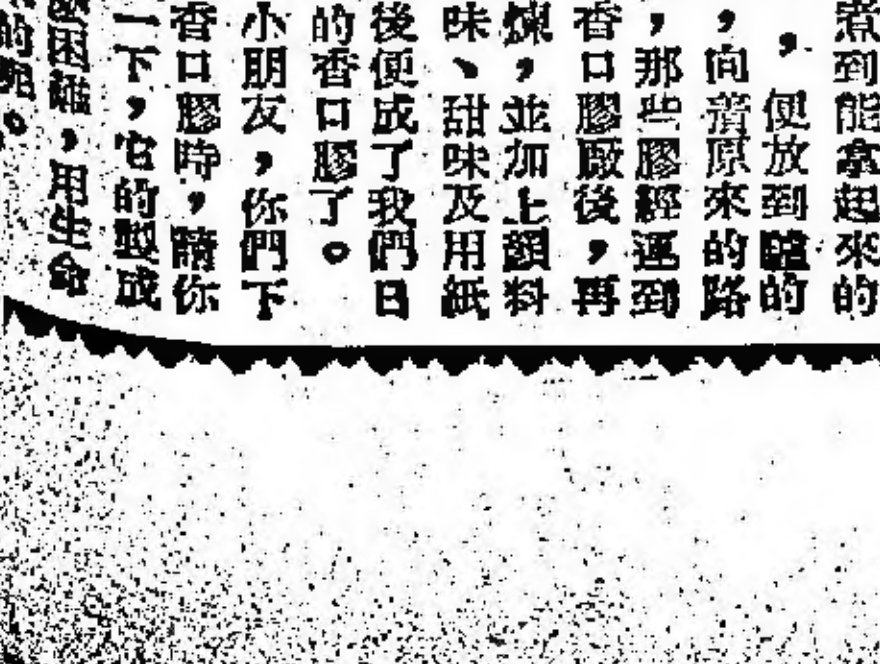 煮到能拿起來的
，便放到驢的
，向着原來的路
，那些膠經運到
香口膠廠後，再
煉，並加上顏料
味、甜味及用紙
後便成了我們日
的香口膠了。
小朋友，你們下
香口膠時，請你
一下，它的製成
困難，用生命
的呢。